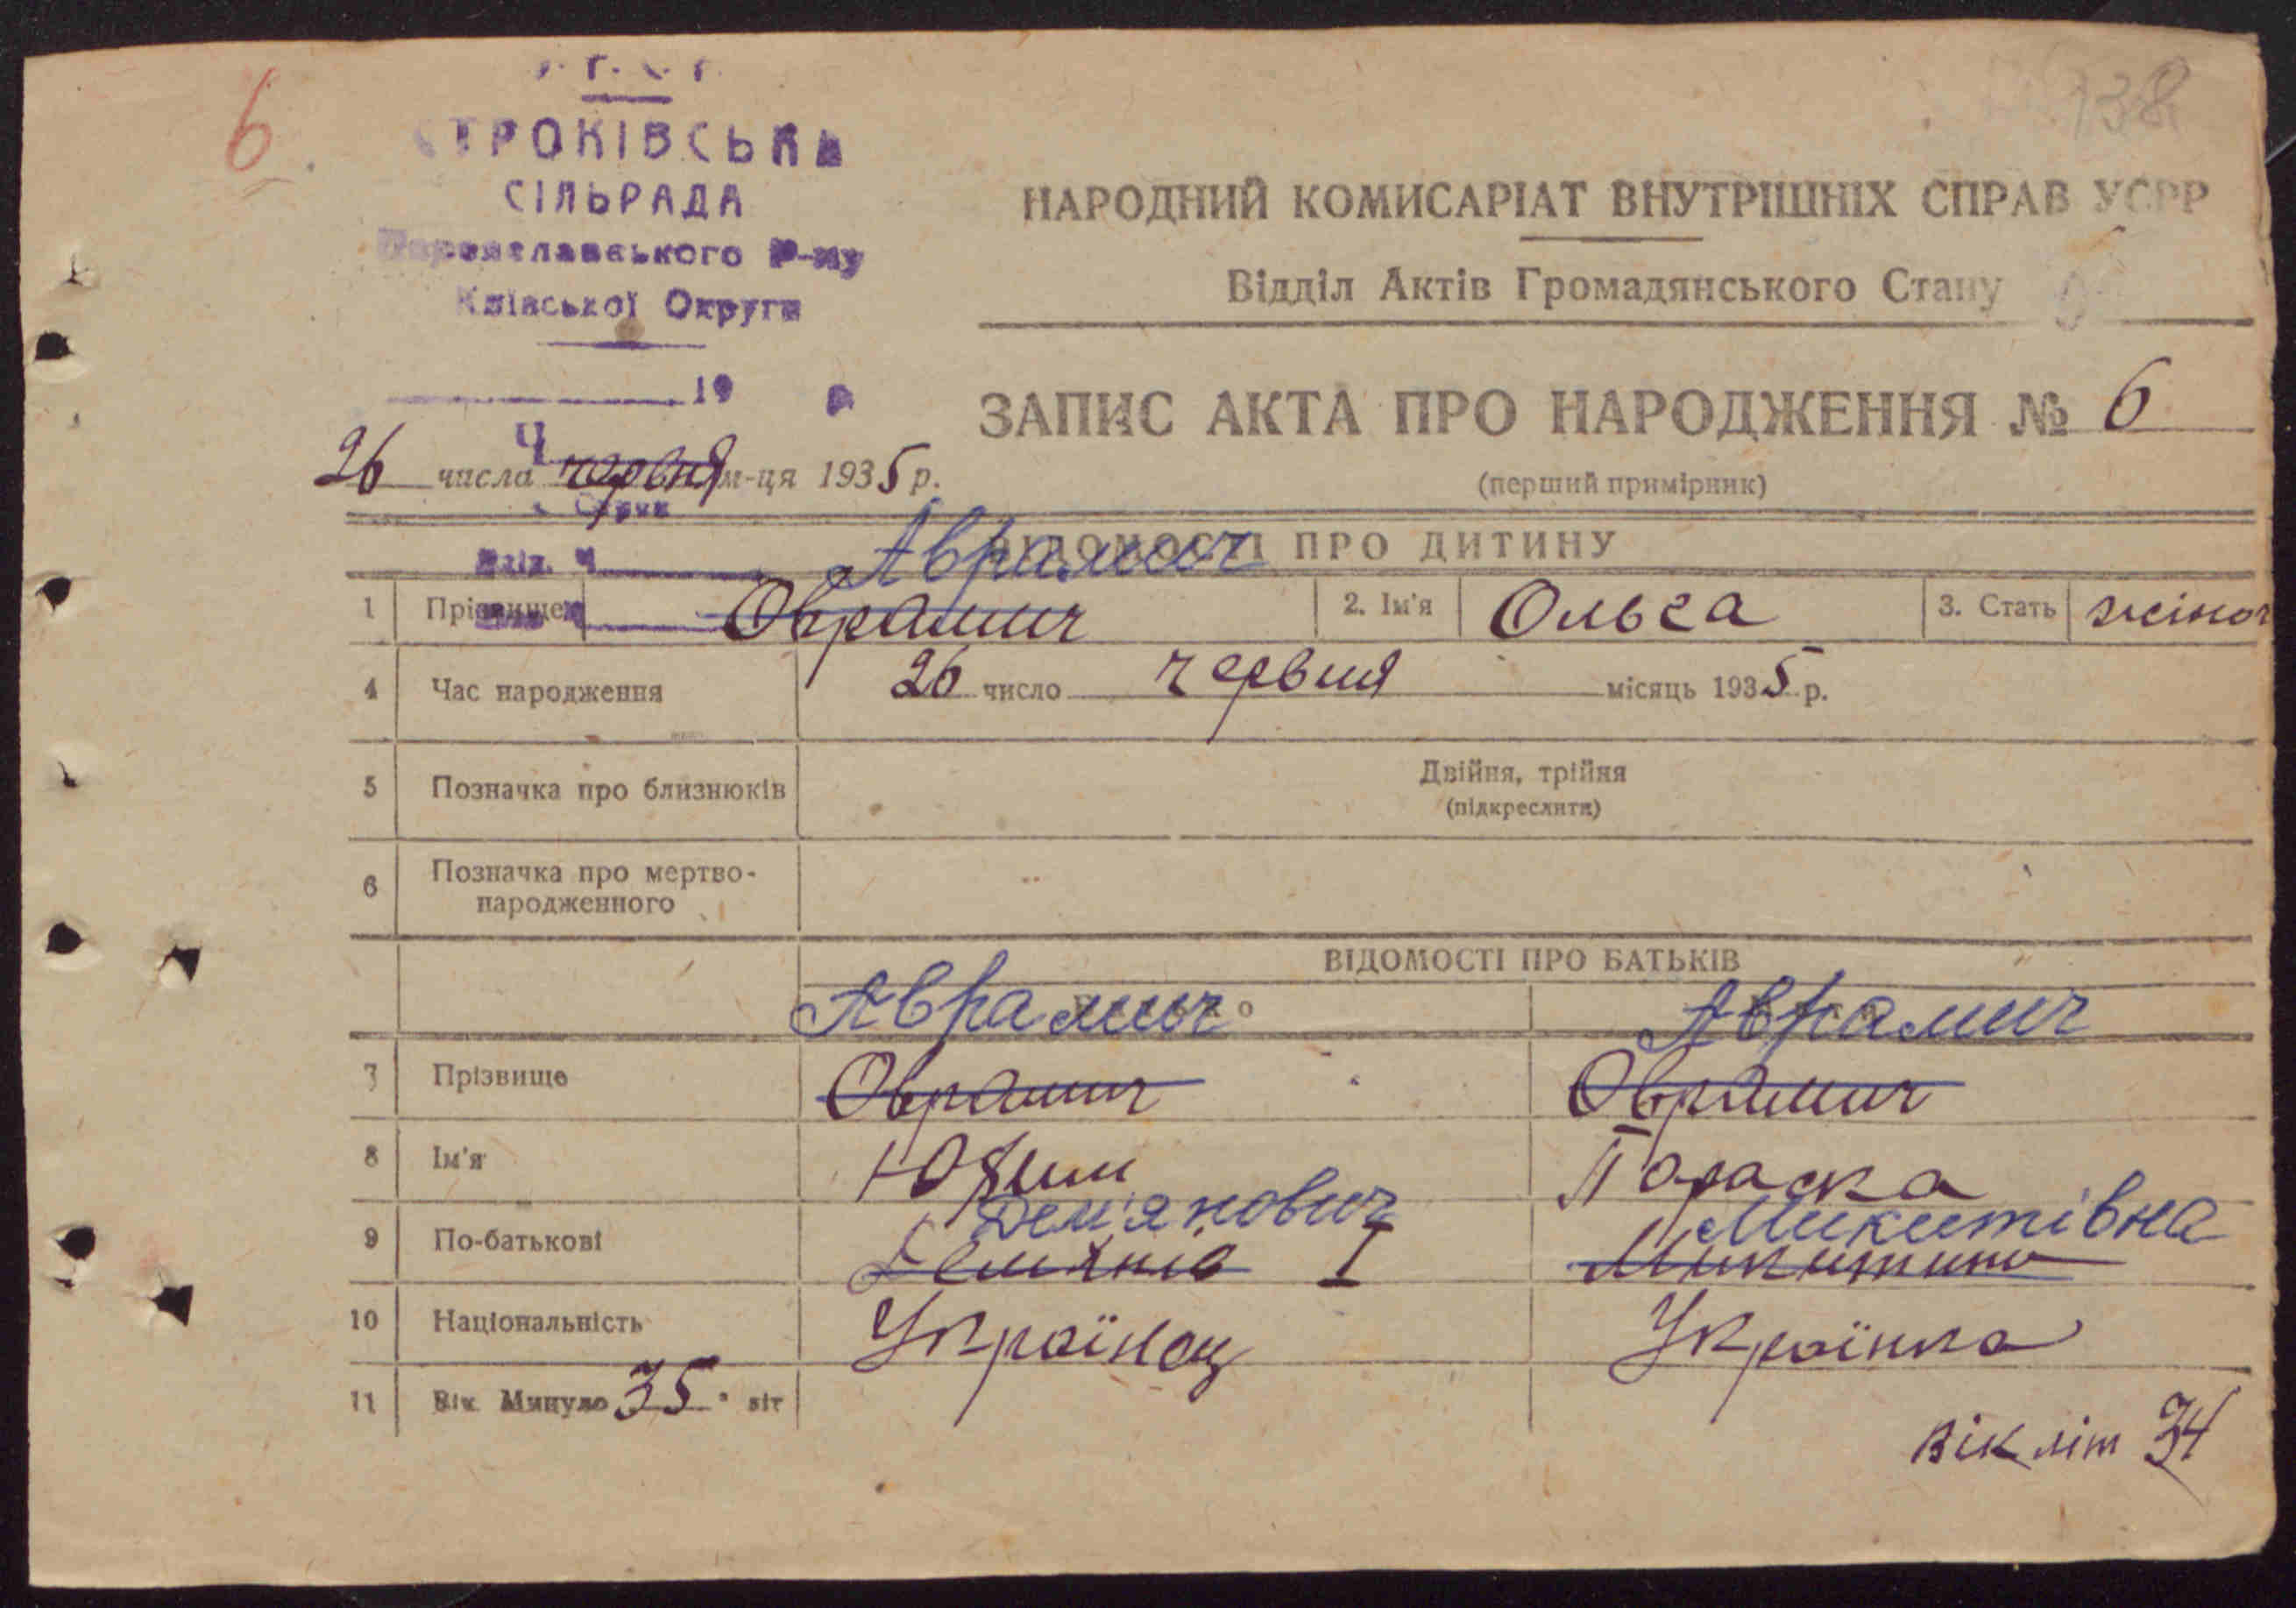 6
138
ТРОКІВСЬКА
СІЛЬРАДА
Переяславського Р-ну
Київської Округи
19 р
26 числа червня м-ця 1935 р.
НАРОДНИЙ КОМИСАРІАТ ВНУТРІШНІХ СПРАВ УСРР
Відділ Актів Громадянського Стану
ЗАПИС АКТА ПРО НАРОДЖЕННЯ № 6
(перший примірник)
ВІДОМОСТІ ПРО ДИТИНУ
Аврамич
1 Прізвище Оврамич 2. Ім'я Ольга 3. Стать жіноч
4 Час народження 26 число червня місяць 1935 р.
5 Позначка про близнюків Двійня, трійня
(підкреслити)
6 Позначка про мертво-
народженного
ВІДОМОСТІ ПРО БАТЬКІВ
Аврамич Аврамич
7 Прізвище Оврамич Оврамич
8 Ім'я Юхим Параска
Дем'янович Микитівна
9 По-батькові Демянів I Микитина
10 Національність Українец Українка
11 Вік Минуло 35 літ
вік літ 34